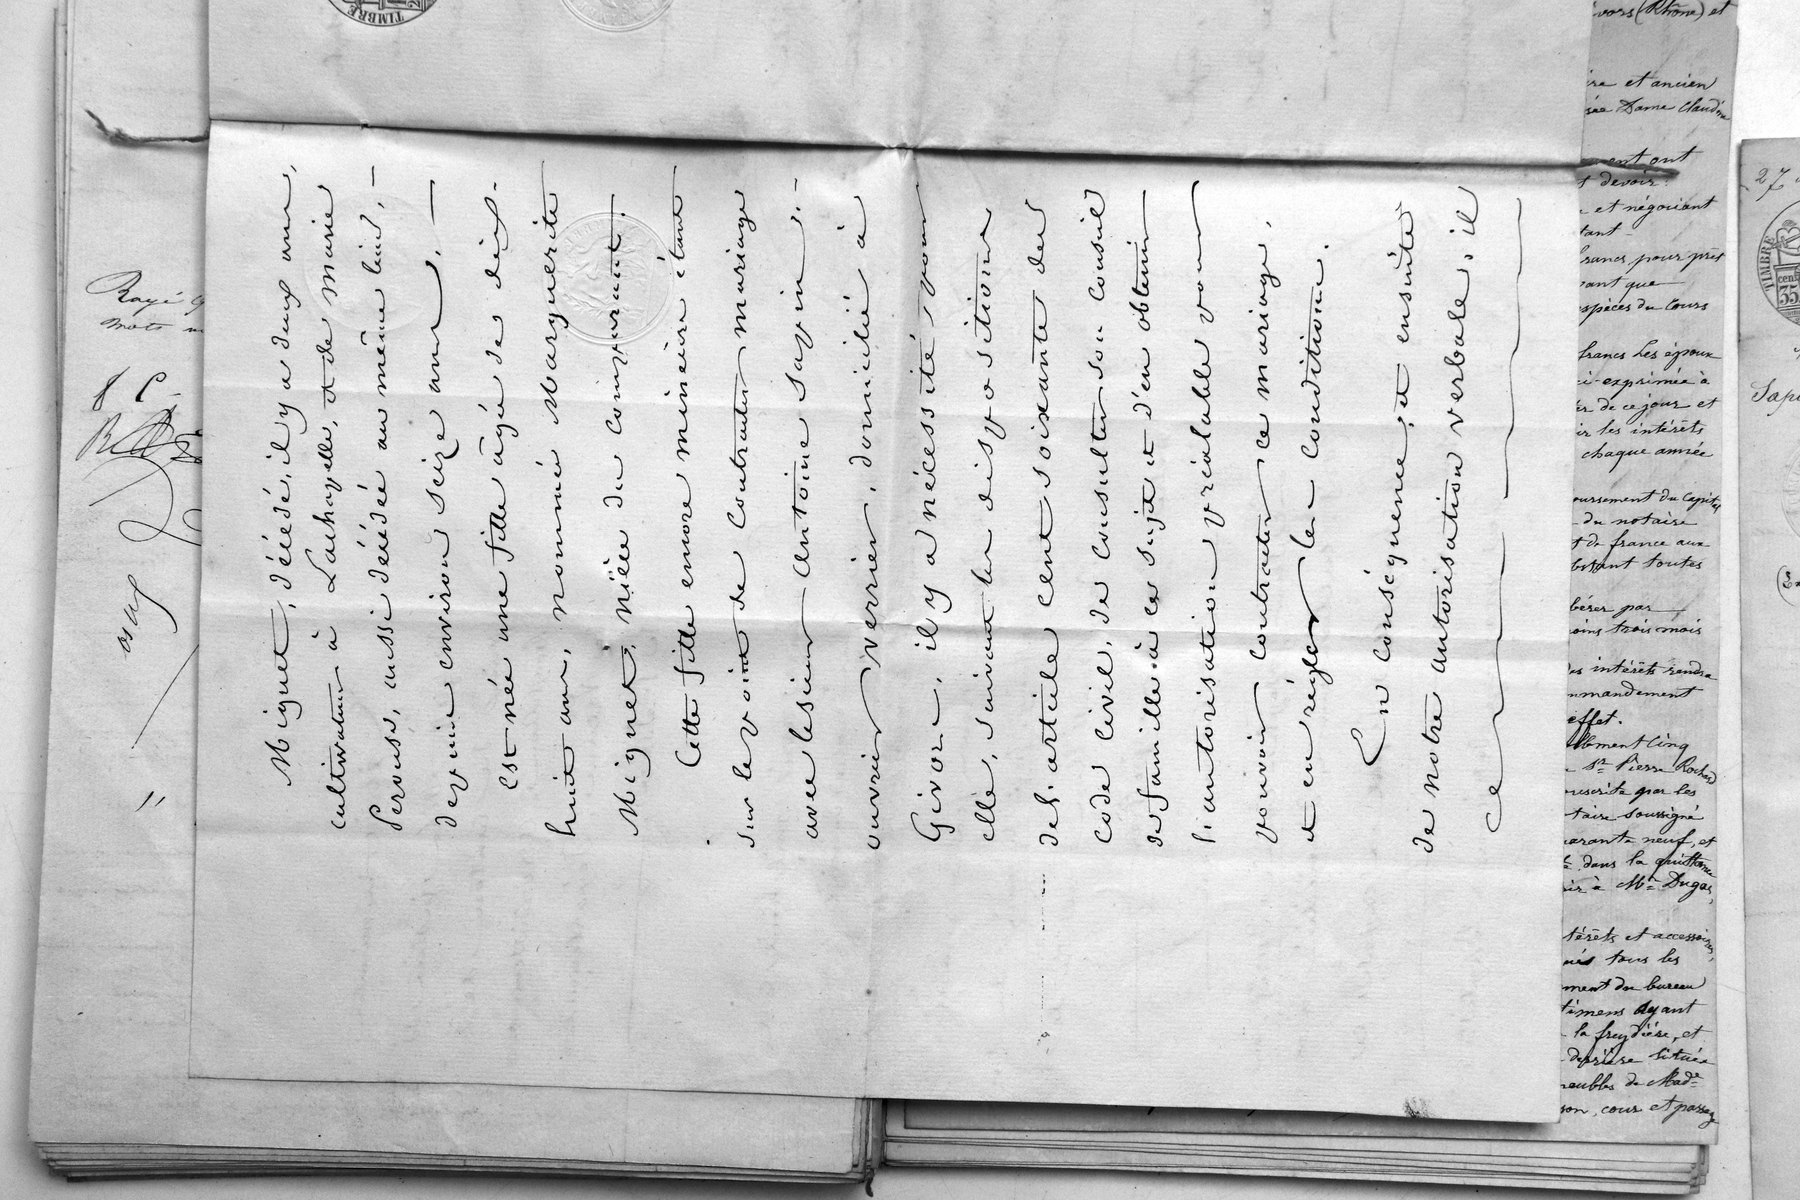 Miguet, décédé, il y a deux ans,
cultivateur à Lachapelle, et de Marie
Perouse, aussi décédée au même lieu, —
depuis environ seize ans, —
Est née une fille âgée de dix-
huit ans, nommée Marguerite
Miguet, nièce du comparant.
Cette fille encore mineure étant
sur le point de contracter mariage
avec le sieur Antoine Sapin, -
ouvrier verrier, domicilié à
Givors, il y a nécessité pour
elle, suivant les dispositions
de l'article cent soixante du
Code Civil, de consulter son conseil
de famille à ce sujet et d'en obtenir
l'autorisation préalable pour
pouvoir contracter ce mariage,
et en régler les conditions.
En conséquence, et ensuite
de notre autorisation verbale, il
Rayé
mots
TIMBRE
vors (Rhône) et
et ancien
Dame Claudine
ent ont
devoir
et négociant
tant
francs, pour près
vant que
espèces du cours
francs Les époux
ci-exprimée à
de ce jour et
les intérêts
chaque année
oursement du Capital
du notaire
de france aux
toutes
bérer par
oins trois mois
des intérêts rendra
mmandement
effet.
lement Cinq
Sr Pierre Rochard
par les
taire soussigné
arante neuf, et
dans la quittance
à Mr Dugas,
térêts et accessoires,
tous les
ment du bureau
timens ayant
la freydière, et
derrière située
meubles de Made
son, cour et passage
27
TIMBRE
35
Sapi